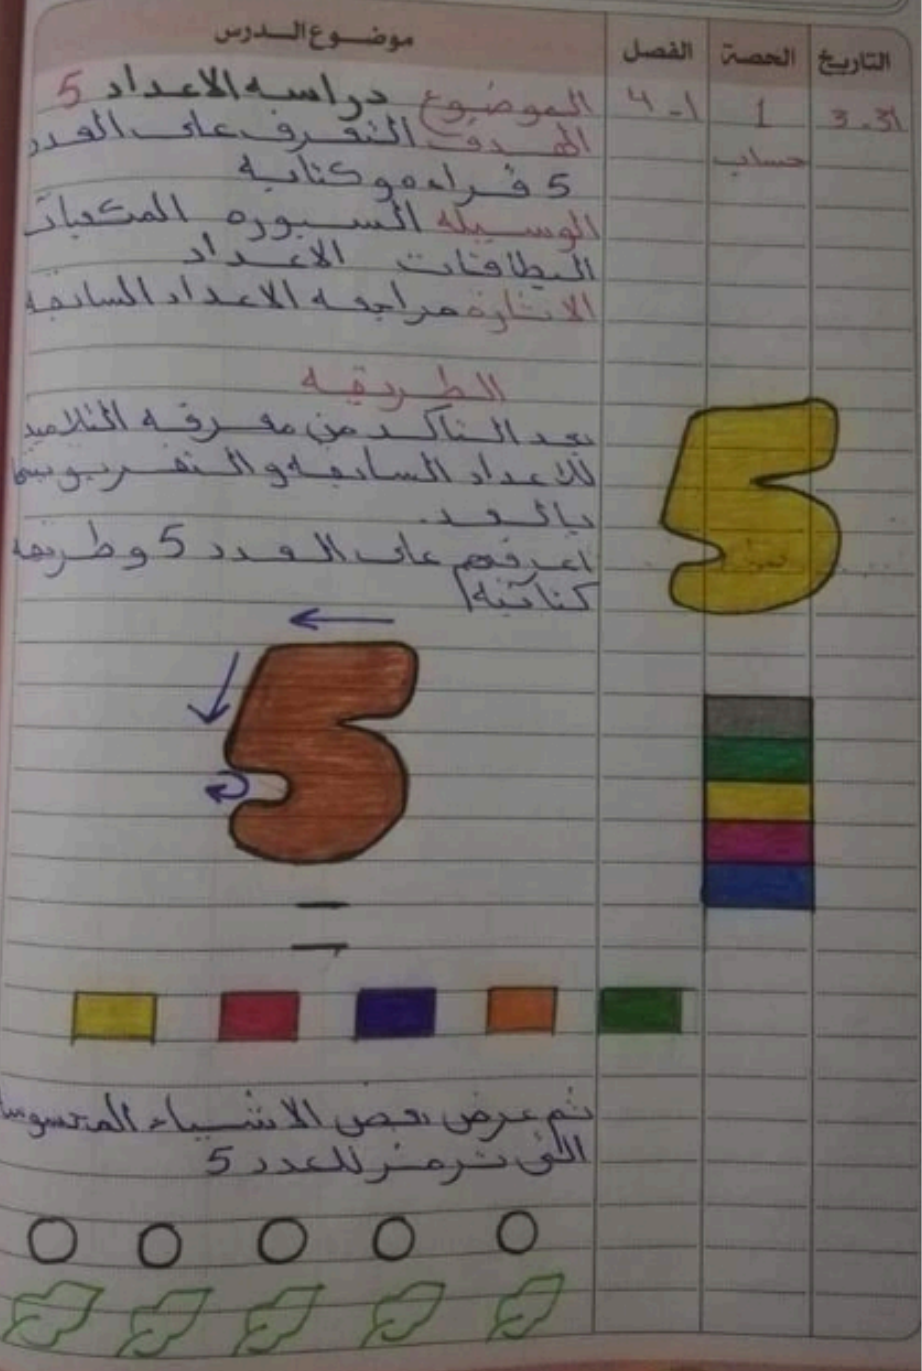 التاريخ الحصة الفصل موضوع الدرس
3-31 1 4-1 الموضوع دراسه الاعداد 5
حساب الهدف التعرف على العدد
5 قراءه وكتابه
الوسيله السبوره المكعبات
البطاقات الاعداد
الاثارة مراجعه الاعداد السابقه
الطريقه
بعد التاكد من معرفه التلاميذ
للاعداد السابقه و التفريق بينها
بالعد.
اعرفهم على العدد 5 وطريقه
كتابتها
5
5
=
ثم عرض بعض الاشياء المحسوسة
التي ترمز للعدد 5